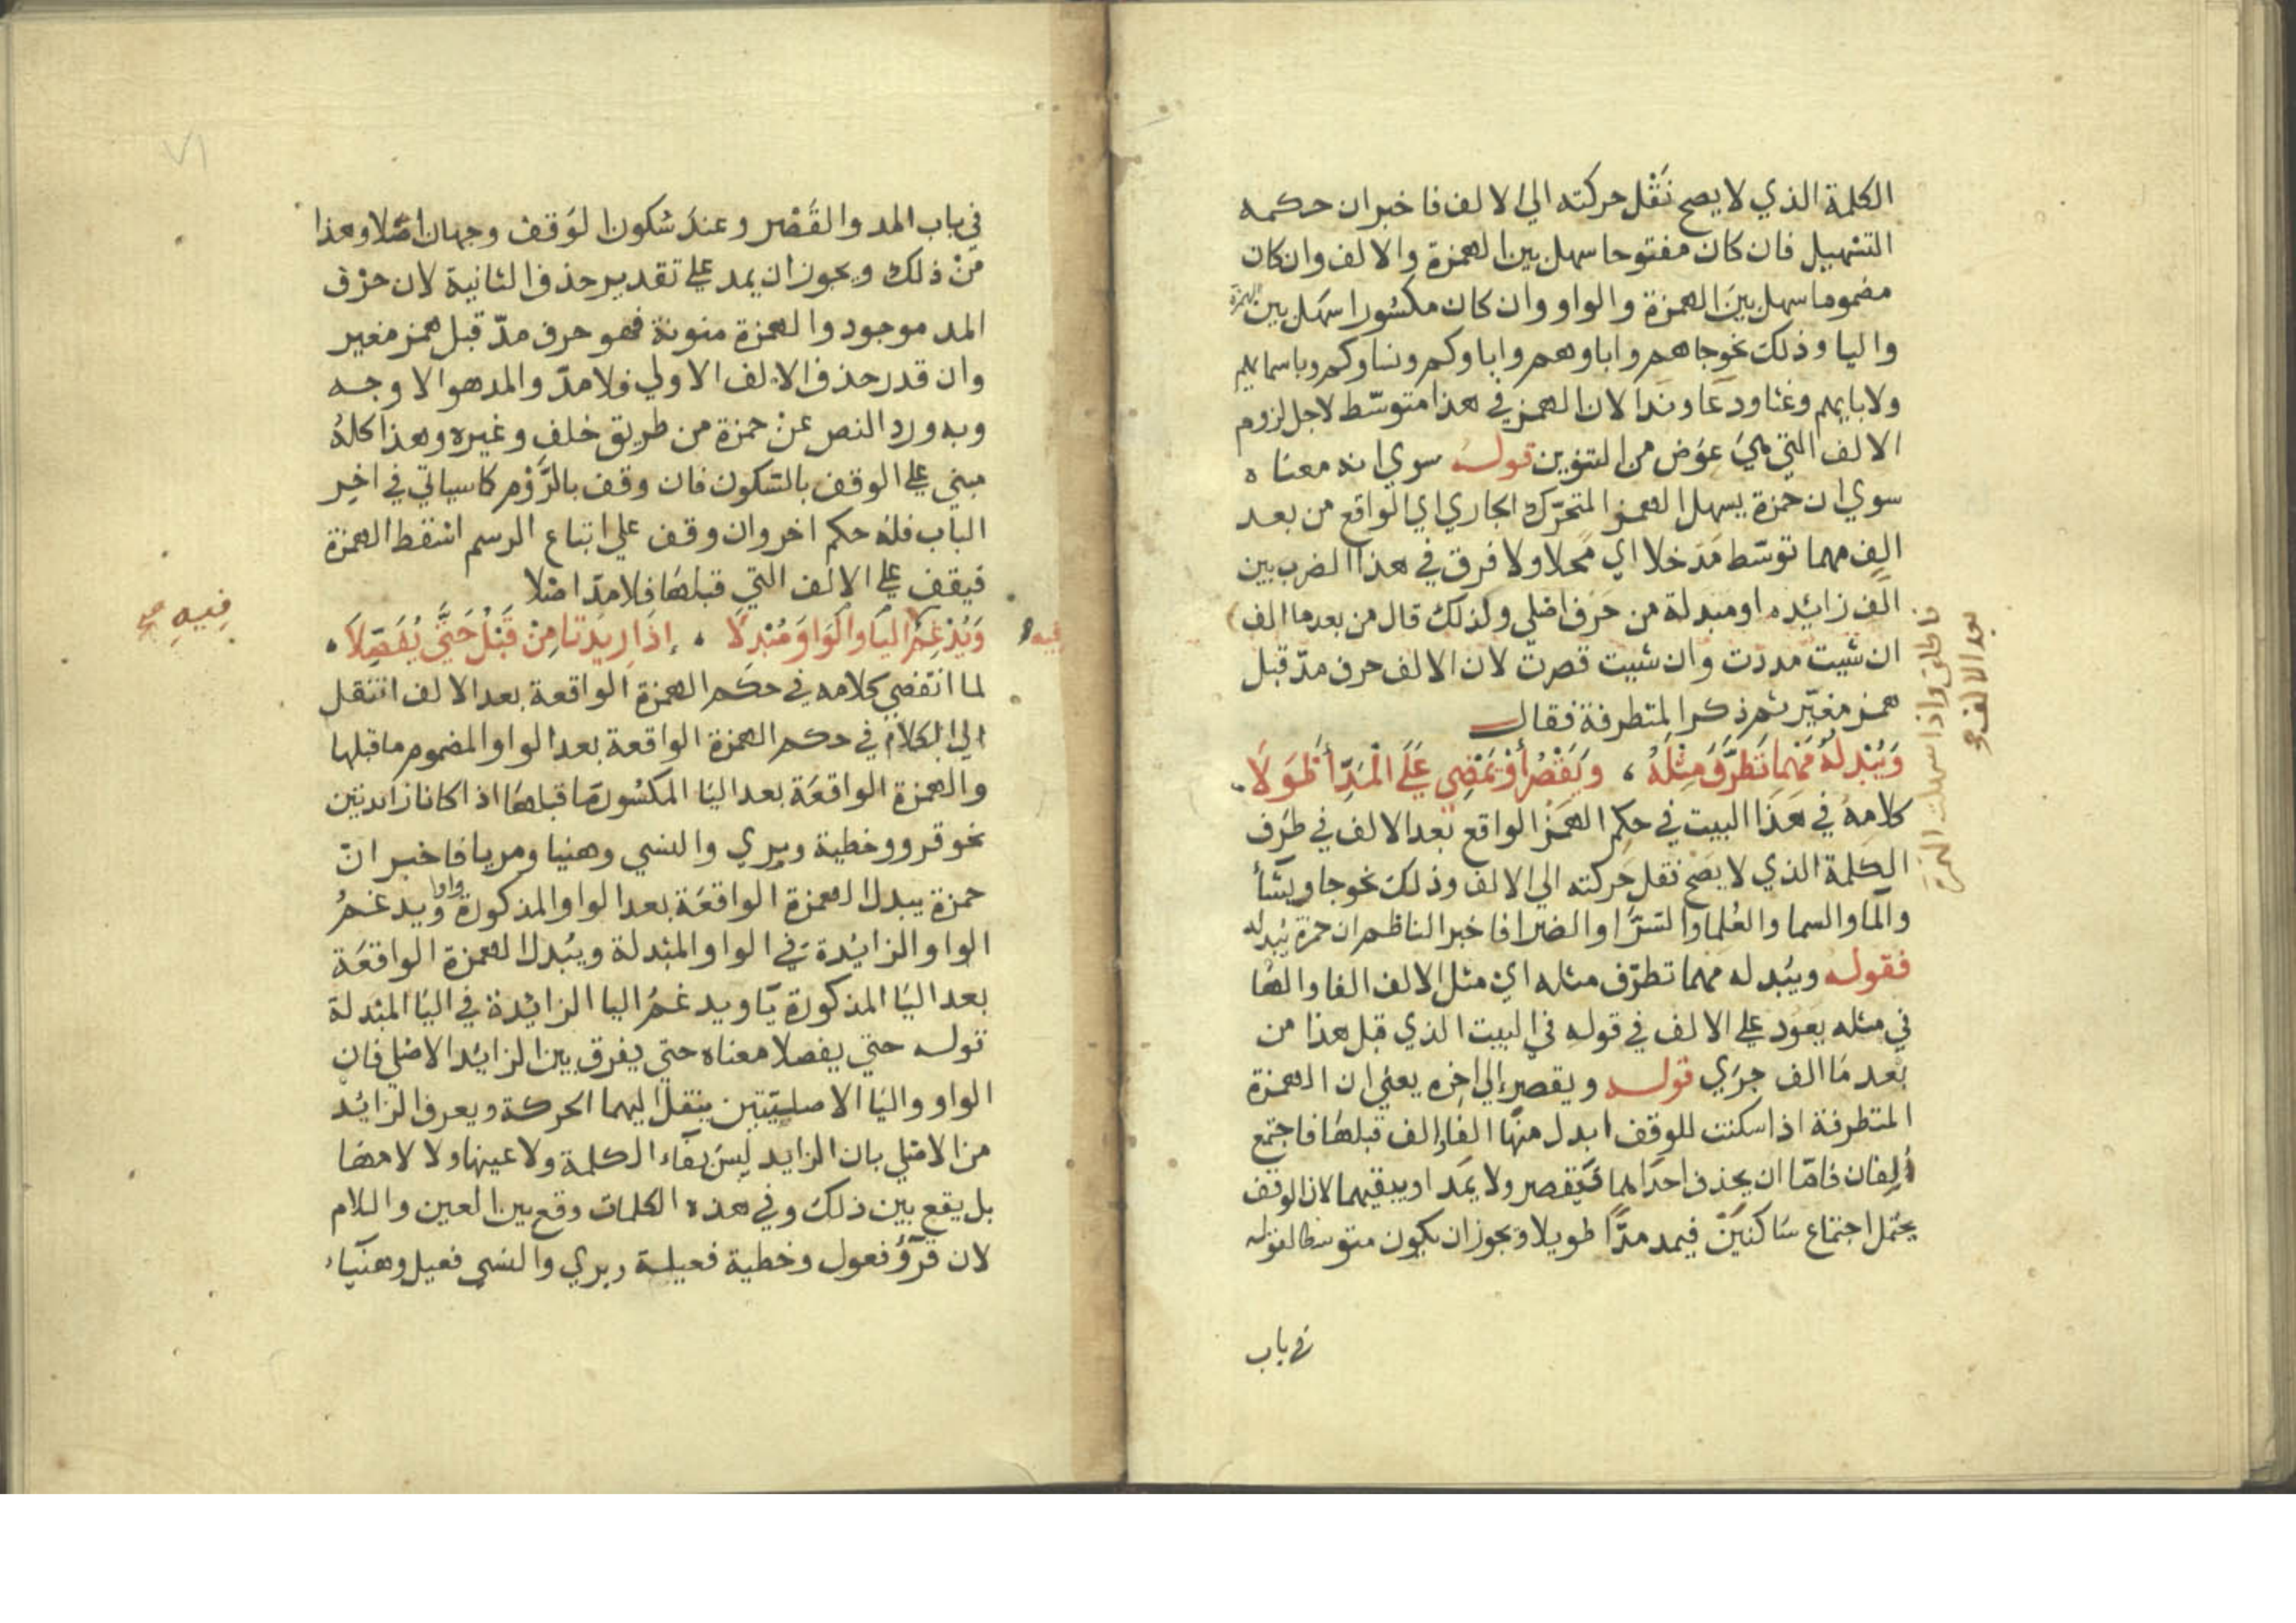 الكلمة الذي لا يصح نَقْل حركته الي الالف فاخبر ان حكمه
التسْهيل فان كان مفتوحا سهل بين الهمزة والالف وان كان
مضموما سهل بينَ الهمزة والواو وان كان مكسُورا سَهّل بين الهمزة
واليا وذلك نحو جاهم واباوهم واباوكم ونساوكم وباسمايهم
ولابايهم وغثا ودعَا ونَدا لان الهمز في هذا متوسّط لاجل لزوم
الالف التي هيَ عوَض من التنوين قوله سوي انه معناه
سوي ان حمزة يسهل الهمز المتحرّك الجاري اي الواقع من بعد
الف مهما توسّط مَدخلا اي محلا ولا فرق في هذا الضرب بين
الف زائده او مبدلة من حَرف اصْلي ولذلك قال من بعد ما الف
ان شيت مددت وان شيت قصرت لان الالف حرف مدّ قبل
همز مغيّر ثم ذكر المتطرفة فقال
وَيُبْدِلُهُ مَهْمَا تَطَرَّفَ مِثْلَهُ ، وَيَقْصُرُ أَوْ يَمْضِي عَلَى الْمَدِّ أَطْوَلَا
كلامهُ في هَذَا البيت في حكم الهمْز الواقع بَعد الالف في طرَف
الكلمة الذي لا يصَح نقل حَركته الي الالف وذلك نحو جا ويشَأ
والمآ والسما والعُلما والسَّرّا والضرا فاخبر الناظم ان حمزة يبدله
فقوله ويبُدله مهما تطرّف مثله اي مثل الالف الفا والهَا
في مثله يعَود علي الالف في قوله في البيت الذي قبل هذا من
بَعد مَا الف جرَي قوله ويقصر الي اخره يعني ان الهمزة
المتطرفة اذا سكنت للوقف ابدل منهَا الفا والف قبلهَا فاجتمع
ألِفان فامّا ان يحذف احدَاهما فيَقصر ولا يمَد او يبقيهما لان الوقف
يحتَمل اجتماع سَاكنَين فيمد مدّا طويلا ويجوز ان يكون متوسطا لقوله
في باب
فاطلق واذا سهلت الهمزة
بعد الالف
في باب المد والقَصْر وعندَ سُكون الوَقف وجهان اصّلا وهذا
مَنْ ذلك ويجوز ان يمد علي تقدير حذف الثانية لان حرْف
المد موجود والهمزة منونة فهو حرف مدّ قبل همز مغير
وان قدر حذف الالف الاولي فلا مدّ والمد هو الاوجه
وبه ورد النص عنْ حمزة من طريق خلفٍ وغيره وهذا كلهُ
مبني علي الوقف بالسكون فان وقف بالرَّوْم كما سياتي في اخِر
الباب فله حكم اخر وان وقف علي اتباع الرسم اسْقط الهمزة
فيقف علي الالف التي قبلهَا فلا مدّ اصْلا
وَيُدْغِمُ الْيَا وَالْوَاوَ مُبْدِلًا ، إِذَا زِيدَتَا مِنْ قَبْلُ حَتَّي يُفَصِّلَا ،
فيه
فِيهِ
لما انقضي كلامه في حكم الهمزة الواقعة بعد الالف انتقل
الي الكلام في حكم الهمزة الواقعة بعد الواو المضموم ما قبلها
والهمزة الواقعَة بعد اليَا المكسُور مَا قبلهَا اذا كانا زايدتين
نحو قرو وخطية وبري والنسي وهنيا ومريا فاخبر انّ
حمزة يبدل الهمزة الواقعَة بعد الواو المذكورة واوا ويدغمُ
الواو الزايُدة في الواو المبْدلة ويبُدل الهمزة الواقعَة
بعد اليَا المذكورة يَا ويدغمُ اليا الزايْدة في اليَا المبْدلة
قوله حتي يفصلا معناه حتي يفرق بين الزائد الاصْلي فان
الواو واليَا الاصليّتين ينقل اليهما الحركة ويعرف الزائد
من الاصْلي بان الزايد ليسَ بفآء الكلمة ولا عينها ولا لامهَا
بل يقع بين ذلك وفي هذه الكلمات وقع بين العين واللام
لان قرُؤ فعول وخطية فعيلة وبري والنسي فعيل وهنيآء